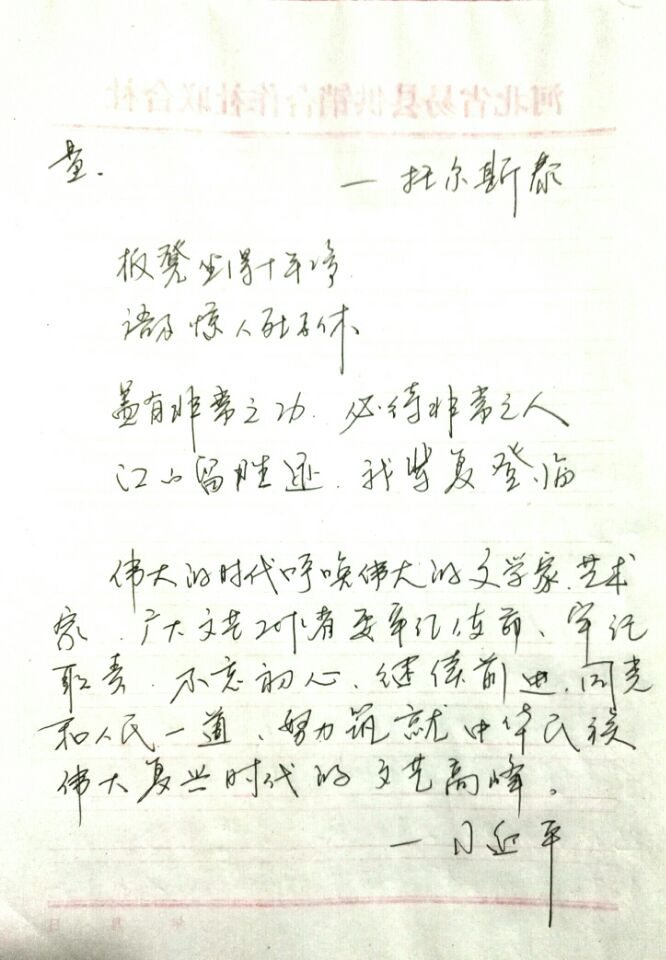 河北省易县供销合作社联合社
量. —托尔斯泰
板凳坐得十年
语不惊人死不休
盖有非常之功.必待非常之人
江山留胜迹.我辈复登临
伟大的时代呼唤伟大的文学家.艺术
家.广大文艺工作者要牢记使命、牢记
职责.不忘初心、继续前进.同党
和人民一道、努力筑就中华民族
伟大复兴时代的文艺高峰。
—习近平
年 月 日